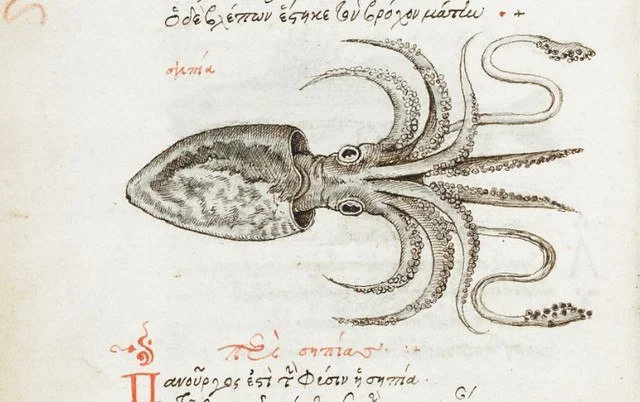 ὁ δὲ βλέπων ἕστηκε τὸν βρόχον μάτην
σηπία
περὶ σηπίας
Πανοῦργος ἐστὶ τὴν φύσιν ἡ σηπία